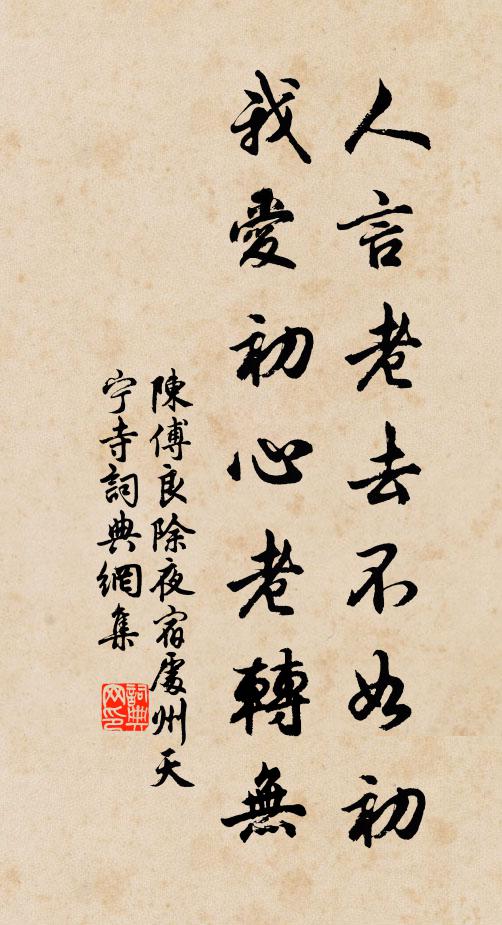 人言老去不如初
我愛初心老轉無
陳傅良除夜宿處州天
宁寺詞典網集
詞典网印